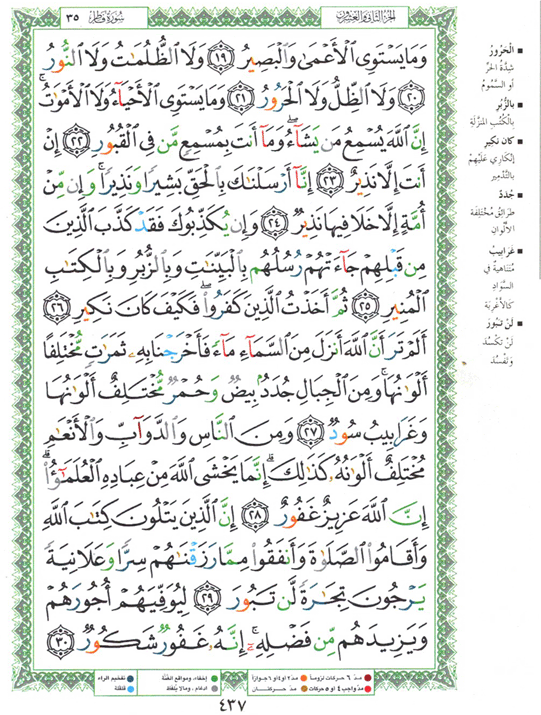 الجزء الثاني والعشرون
سورة فاطر ٣٥
وَمَا يَسْتَوِي الْأَعْمَىٰ وَالْبَصِيرُ ﴿١٩﴾ وَلَا الظُّلُمَاتُ وَلَا النُّورُ
﴿٢٠﴾ وَلَا الظِّلُّ وَلَا الْحَرُورُ ﴿٢١﴾ وَمَا يَسْتَوِي الْأَحْيَاءُ وَلَا الْأَمْوَاتُ ۚ
إِنَّ اللَّهَ يُسْمِعُ مَن يَشَاءُ ۖ وَمَا أَنتَ بِمُسْمِعٍ مَّن فِي الْقُبُورِ ﴿٢٢﴾ إِنْ
أَنتَ إِلَّا نَذِيرٌ ﴿٢٣﴾ إِنَّا أَرْسَلْنَاكَ بِالْحَقِّ بَشِيرًا وَنَذِيرًا ۚ وَإِن مِّنْ
أُمَّةٍ إِلَّا خَلَا فِيهَا نَذِيرٌ ﴿٢٤﴾ وَإِن يُكَذِّبُوكَ فَقَدْ كَذَّبَ الَّذِينَ
مِن قَبْلِهِمْ جَاءَتْهُمْ رُسُلُهُم بِالْبَيِّنَاتِ وَبِالزُّبُرِ وَبِالْكِتَابِ
الْمُنِيرِ ﴿٢٥﴾ ثُمَّ أَخَذْتُ الَّذِينَ كَفَرُوا ۖ فَكَيْفَ كَانَ نَكِيرِ ﴿٢٦﴾
أَلَمْ تَرَ أَنَّ اللَّهَ أَنزَلَ مِنَ السَّمَاءِ مَاءً فَأَخْرَجْنَا بِهِ ثَمَرَاتٍ مُّخْتَلِفًا
أَلْوَانُهَا ۚ وَمِنَ الْجِبَالِ جُدَدٌ بِيضٌ وَحُمْرٌ مُّخْتَلِفٌ أَلْوَانُهَا
وَغَرَابِيبُ سُودٌ ﴿٢٧﴾ وَمِنَ النَّاسِ وَالدَّوَابِّ وَالْأَنْعَامِ
مُخْتَلِفٌ أَلْوَانُهُ كَذَٰلِكَ ۗ إِنَّمَا يَخْشَى اللَّهَ مِنْ عِبَادِهِ الْعُلَمَاءُ ۗ
إِنَّ اللَّهَ عَزِيزٌ غَفُورٌ ﴿٢٨﴾ إِنَّ الَّذِينَ يَتْلُونَ كِتَابَ اللَّهِ
وَأَقَامُوا الصَّلَاةَ وَأَنفَقُوا مِمَّا رَزَقْنَاهُمْ سِرًّا وَعَلَانِيَةً
يَرْجُونَ تِجَارَةً لَّن تَبُورَ ﴿٢٩﴾ لِيُوَفِّيَهُمْ أُجُورَهُمْ
وَيَزِيدَهُم مِّن فَضْلِهِ ۚ إِنَّهُ غَفُورٌ شَكُورٌ ﴿٣٠﴾
■ الْحَرُورُ
شِدَّةُ الحَرِّ
أو السَّمُومُ
■ بالزُّبُر
بِالْكُتُبِ المُنَزَّلَةِ
■ كان نكير
إنكاري عَلَيْهم
بالتَّدْمِير
■ جُدَدٌ
طَرَائِقُ مُخْتَلِفَة
الألْوَان
■ غَرَابِيبُ
مُتَنَاهِيةٌ في
السَّوَاد
كالأغْرِبَة
■ لن تبُورَ
لن تَكْسُدَ
وتَفْسُدَ
مدّ ٦ حركات لزوماً
مدّ ٢ أو ٤ أو ٦ جوازاً
مدّ واجب ٤ أو ٥ حركات
مدّ حركتان
إخفاء، ومواقع الغنّة
إدغام، وما لا يلفظ
تفخيم الراء
قلقلة
٤٣٧